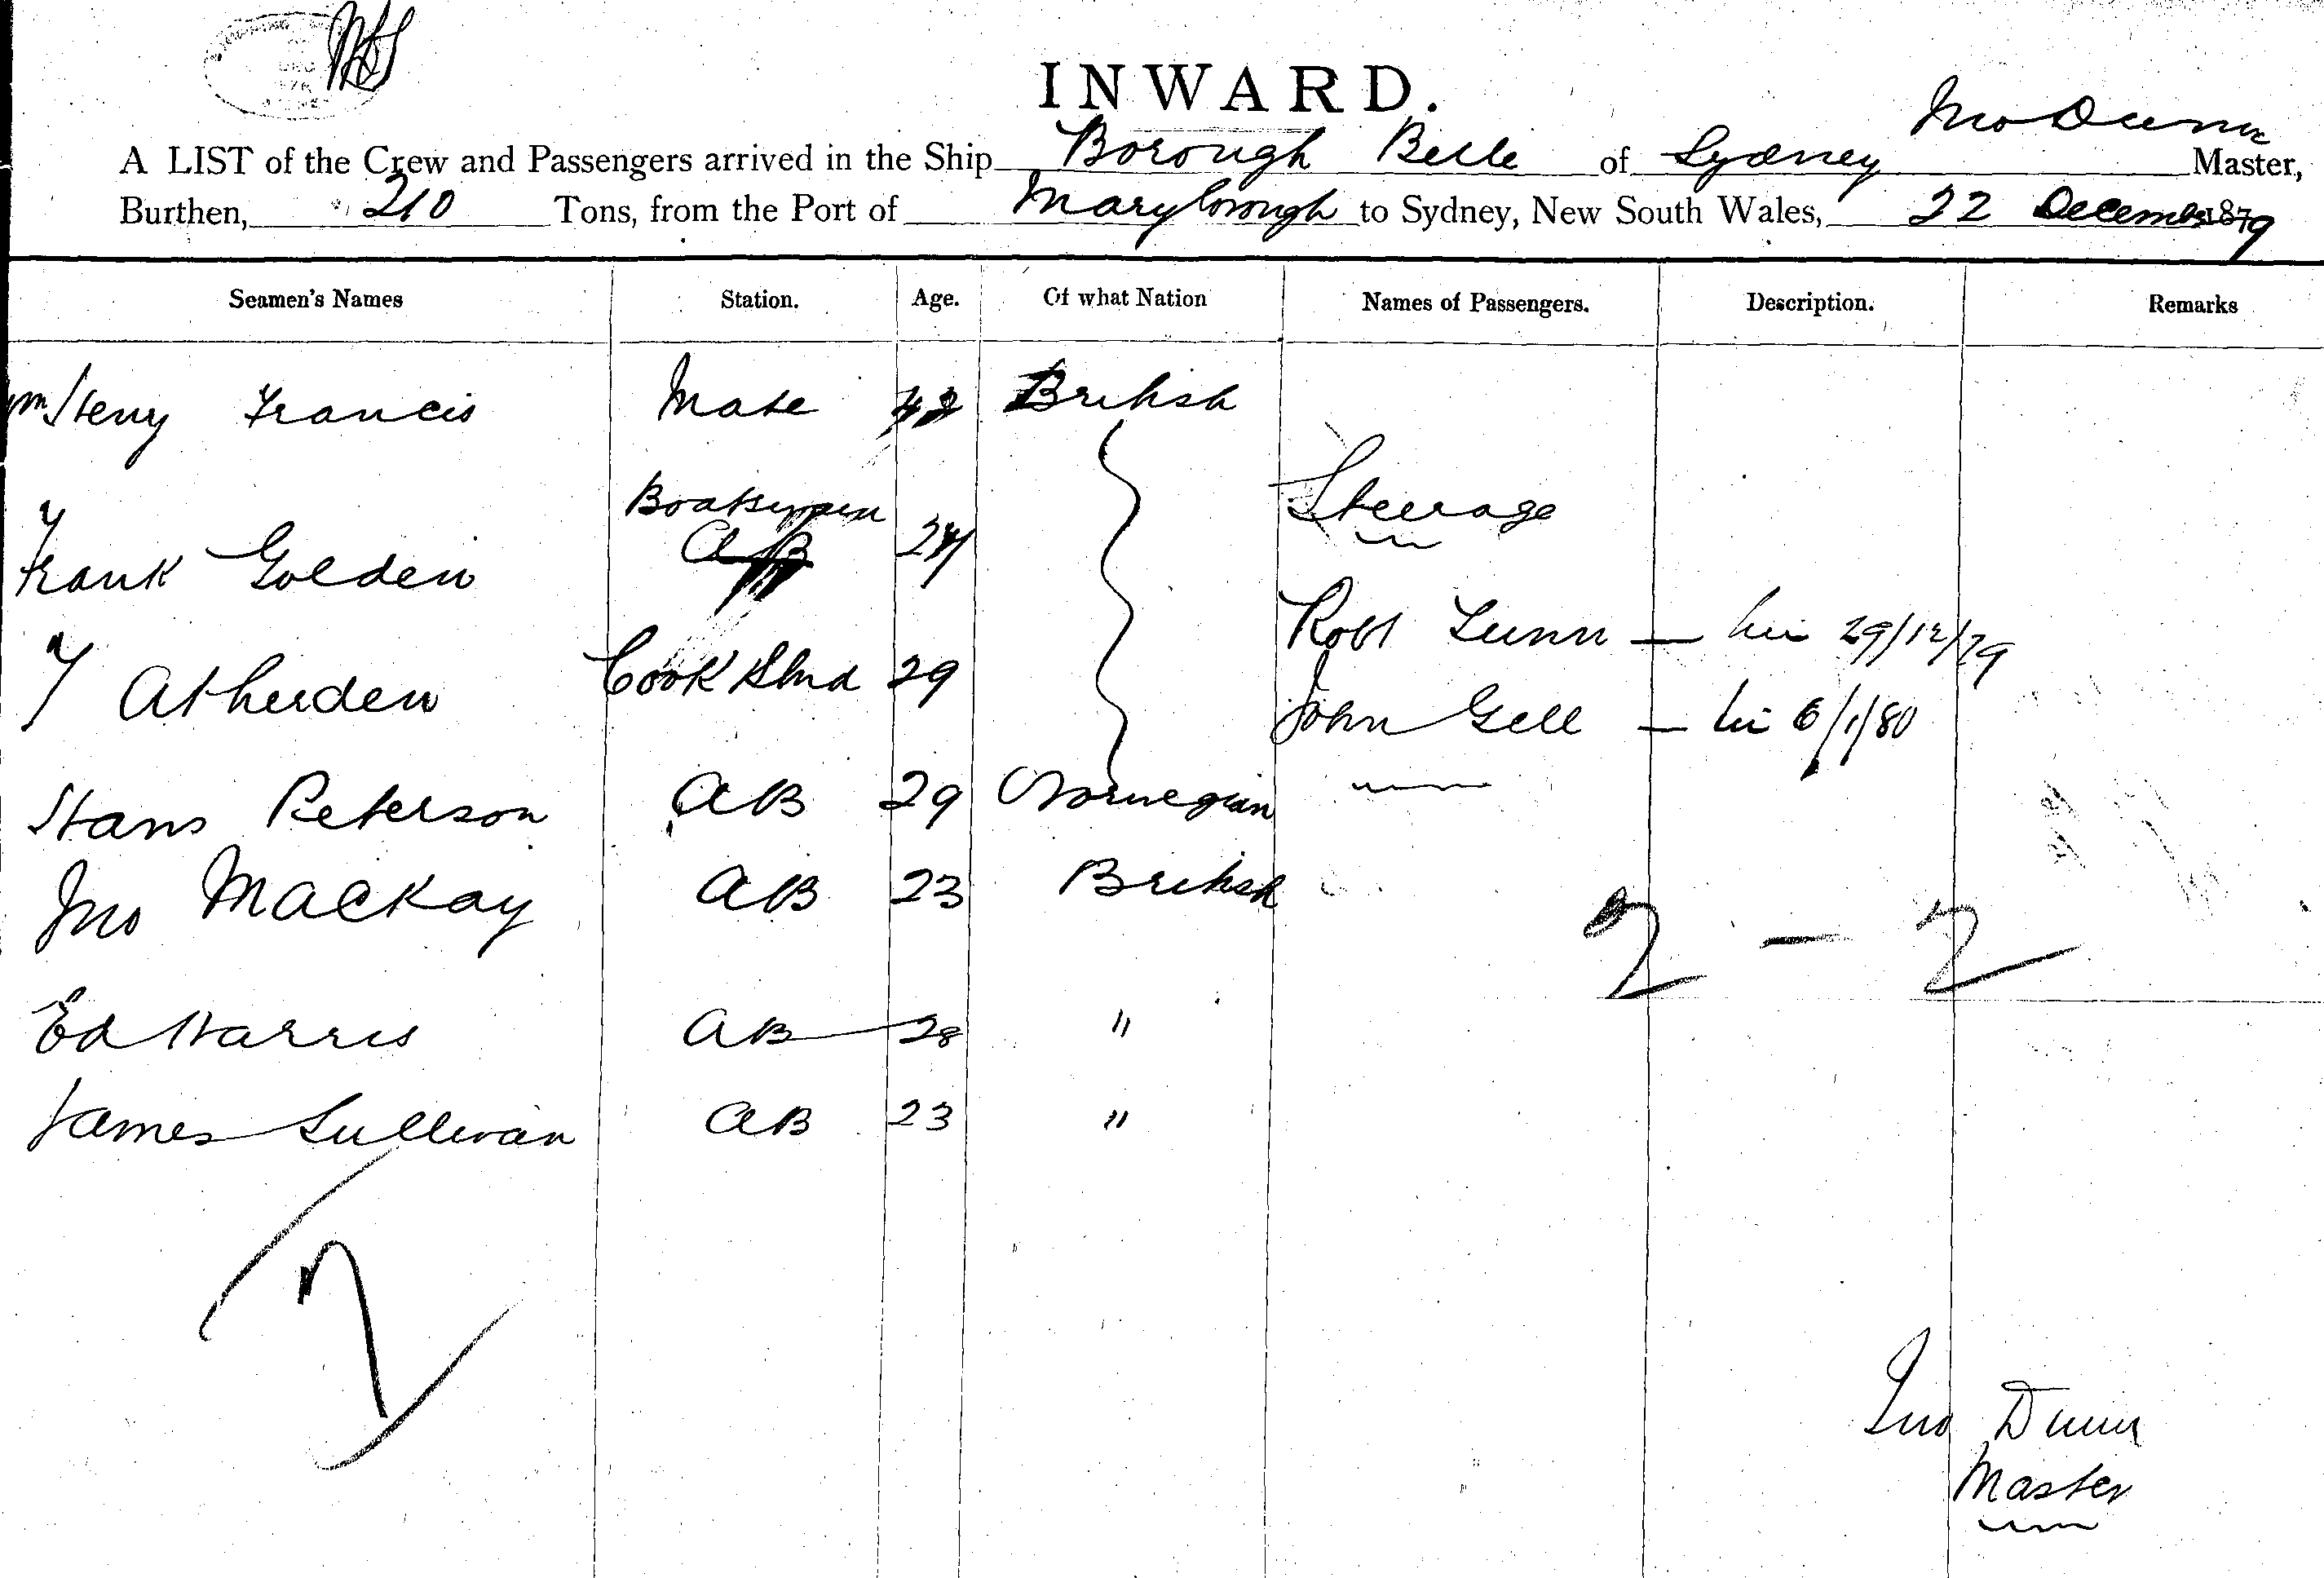 INWARD.
Jno Dunn
A LIST of the Crew and Passengers arrived in the Ship Borough Belle of Sydney Master,
Burthen, 210 Tons, from the Port of Maryborough to Sydney, New South Wales, 22 December 1879
Seamen's Names Station. Age. Of what Nation Names of Passengers. Description. Remarks
Wm Henry Francis Mate 42 British
Steerage
Boatswain
Frank Golden AB 24
Robt Lunn — 29/12/79
Atherden Cook Stwd 29
John Gell — 6/1/80
Hans Peterson AB 29 Norwegian
Jno Mackay AB 23 British
2 — 2
Ed Harris AB 28 "
James Sullivan AB 23 "
7
Jno Dunn
Master